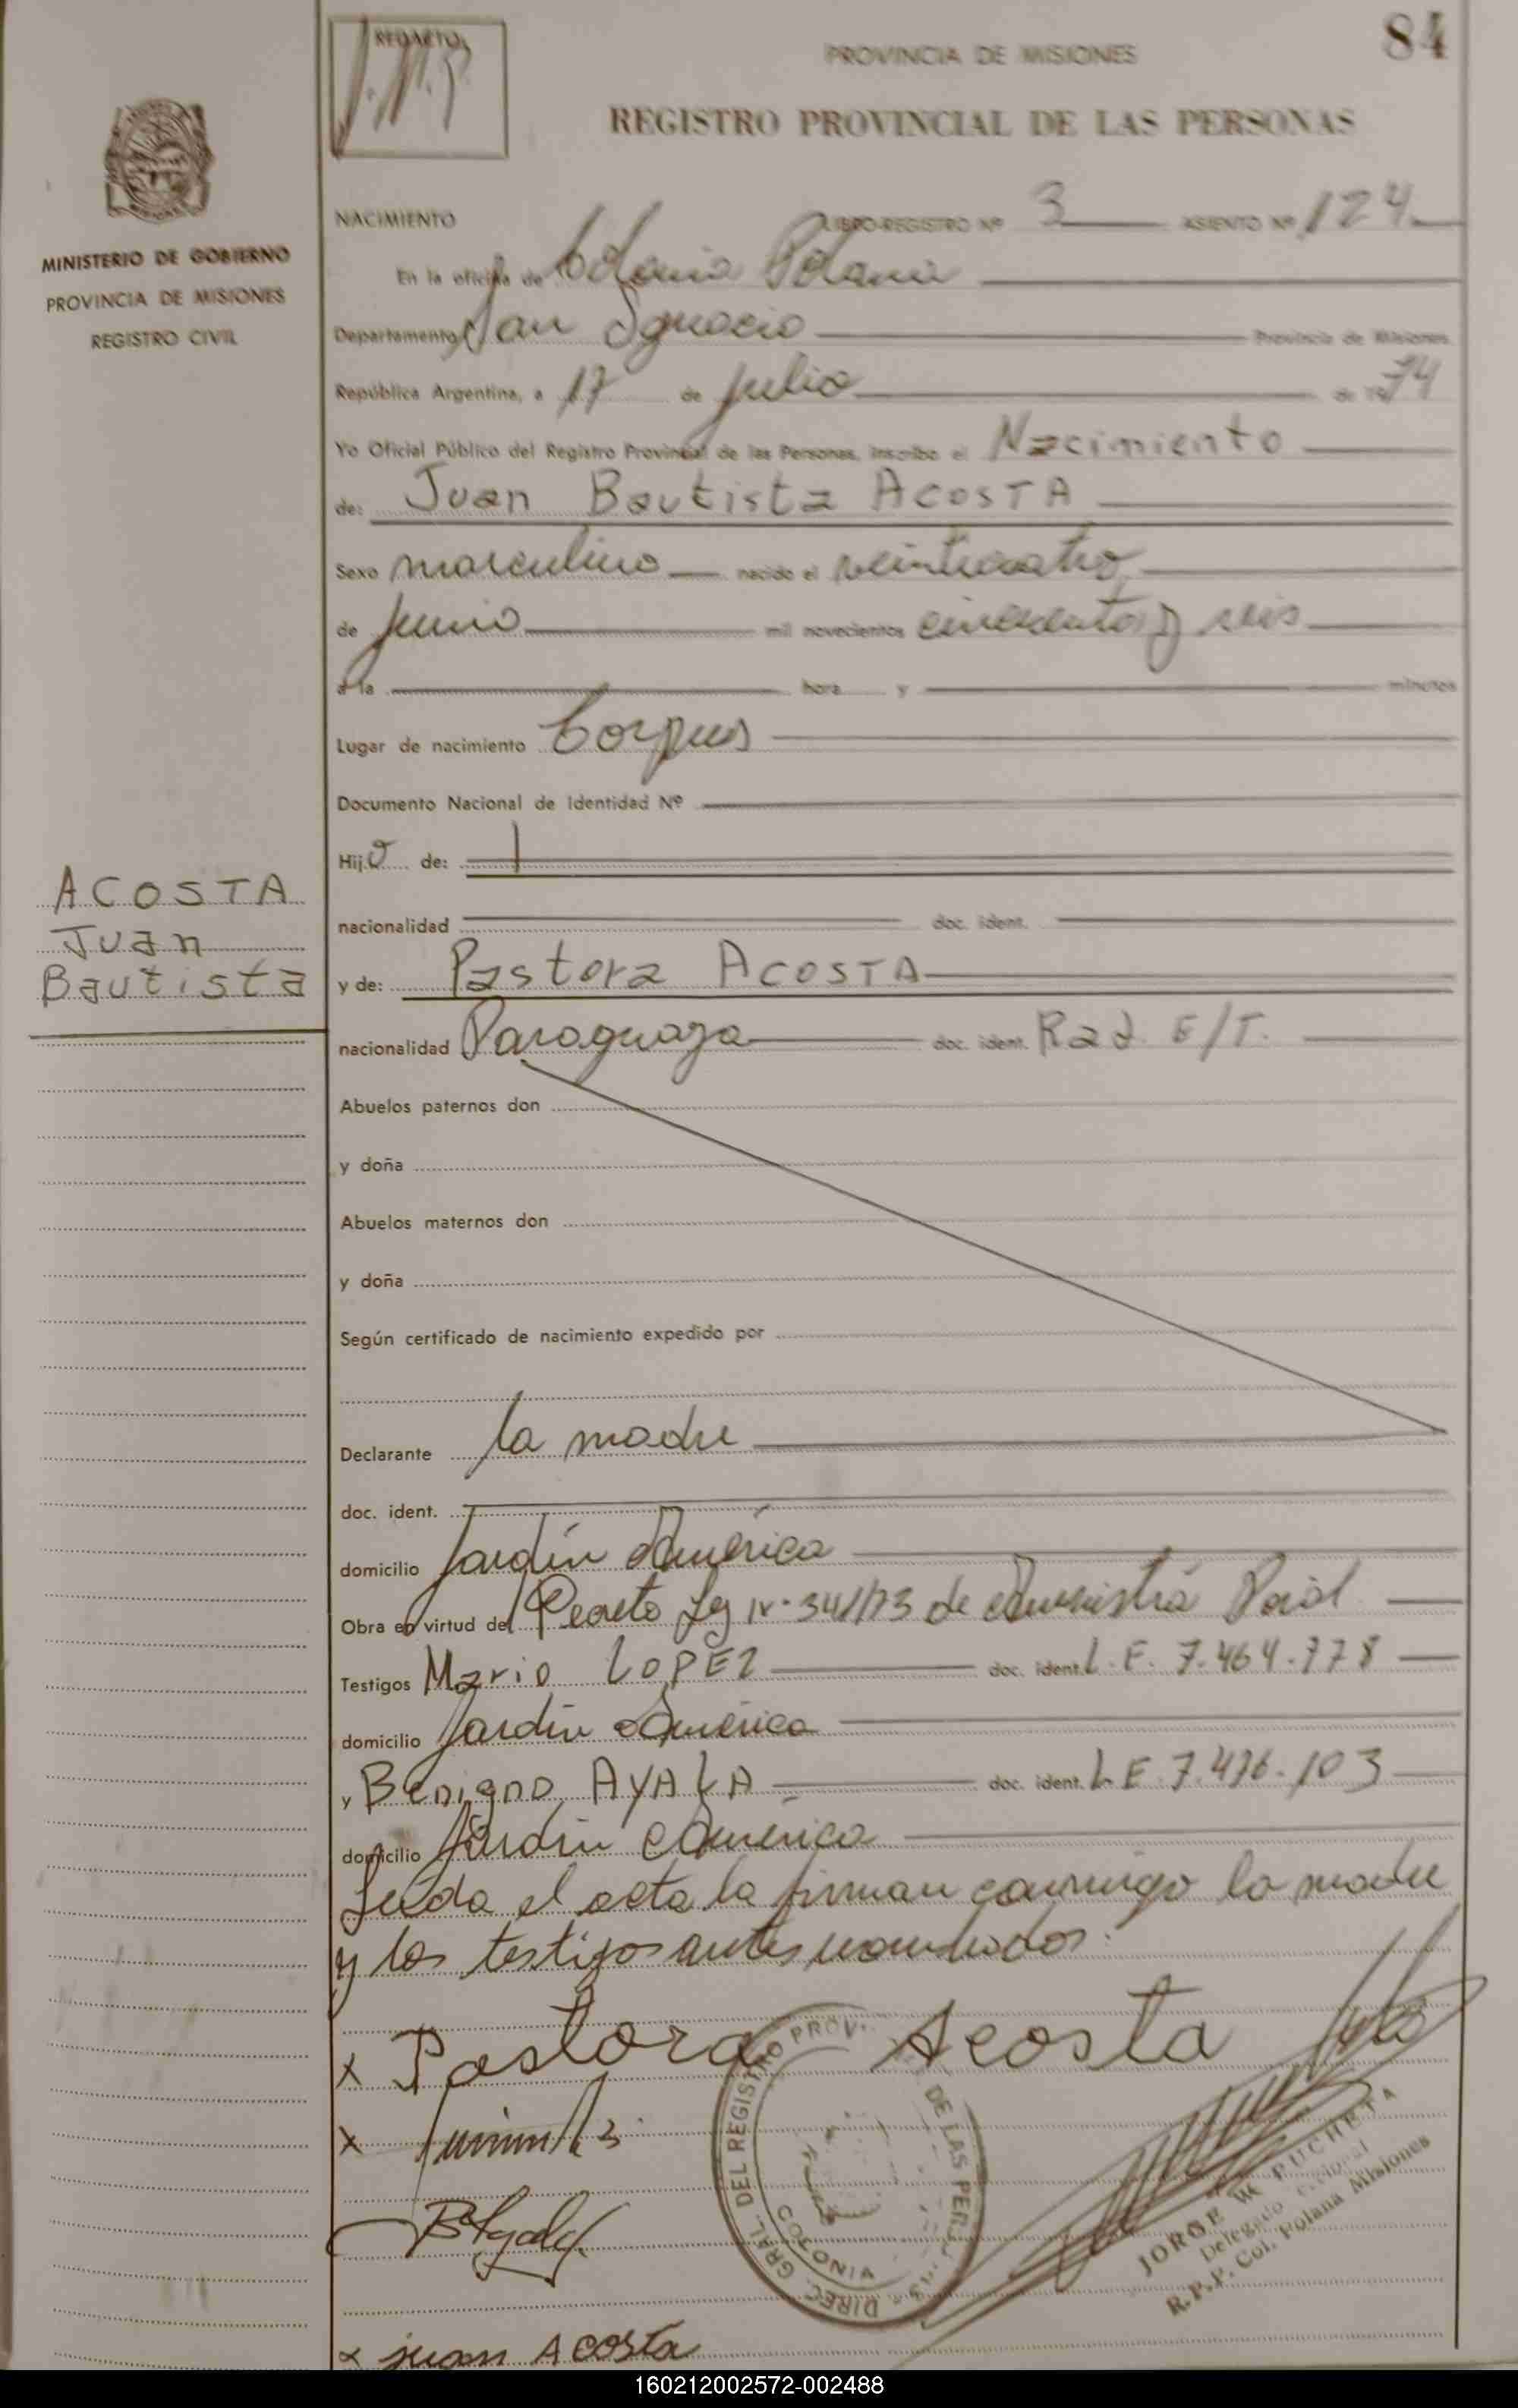 84
REDACTO
PROVINCIA DE MISIONES
REGISTRO PROVINCIAL DE LAS PERSONAS
MINISTERIO DE GOBIERNO
PROVINCIA DE MISIONES
REGISTRO CIVIL
NACIMIENTO LIBRO-REGISTRO Nº 3 ASIENTO Nº 124
En la oficina de Colonia Polana
Departamento San Ignacio Provincia de Misiones
República Argentina, a 17 de Julio de 1974
Yo Oficial Público del Registro Provincial de las Personas, inscribo el Nacimiento
de: Juan Bautista ACOSTA
Sexo masculino nacido el veinticuatro
de junio mil novecientos cincuenta y seis
a la hora y minutos
Lugar de nacimiento Corpus
Documento Nacional de Identidad Nº
Hijo de:
ACOSTA
Juan
Bautista
nacionalidad doc. ident.
y de: Pastora ACOSTA
nacionalidad Paraguaya doc. ident. Rad. E/T.
Abuelos paternos don
y doña
Abuelos maternos don
y doña
Según certificado de nacimiento expedido por
Declarante la madre
doc. ident.
domicilio Jardín América
Obra en virtud del Decreto Ley Nº 341/73 de
Testigos Mario LOPEZ doc. ident. L.E. 7.464.778
domicilio Jardín América
y Benigno AYALA doc. ident. L.E. 7.476.103
domicilio Jardín América
Leída el acta la firman conmigo la madre
y los testigos antes nombrados.
x Pastora Acosta
x
BAyala
DIREC. GRAL. DEL REGISTRO PROV. DE LAS PERS.
COLONIA
JORGE W. PUCHETA
Delegado Seccional
R.P.P. Col. Polana Misiones
x juan Acosta
160212002572-002488